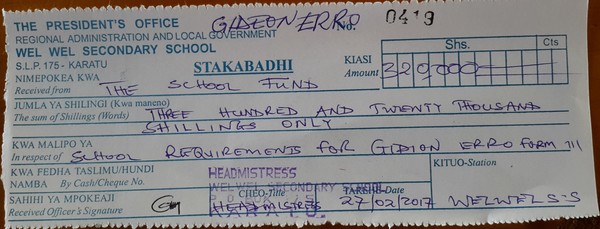 THE PRESIDENT'S OFFICE GIDEON ERRO No. 0419
REGIONAL ADMINISTRATION AND LOCAL GOVERNMENT
WEL WEL SECONDARY SCHOOL
S.L.P. 175 - KARATU STAKABADHI KIASI Shs. Cts
NIMEPOKEA KWA Amount 320,000
Received from THE SCHOOL FUND
JUMLA YA SHILINGI (Kwa maneno) THREE HUNDRED AND TWENTY THOUSAND
The sum of Shillings (Words) SHILLINGS ONLY
KWA MALIPO YA
In respect of SCHOOL REQUIREMENTS FOR GIDION ERRO FORM III
KWA FEDHA TASLIMU/HUNDI HEADMISTRESS KITUO-Station
NAMBA By Cash/Cheque No. WELWEL SECONDARY SCHOOL
SAHIHI YA MPOKEAJI CHEO-Title TAREHE-Date
Received Officer's Signature HEADMISTRESS 27/02/2017 WELWEL S.S
KARATU.